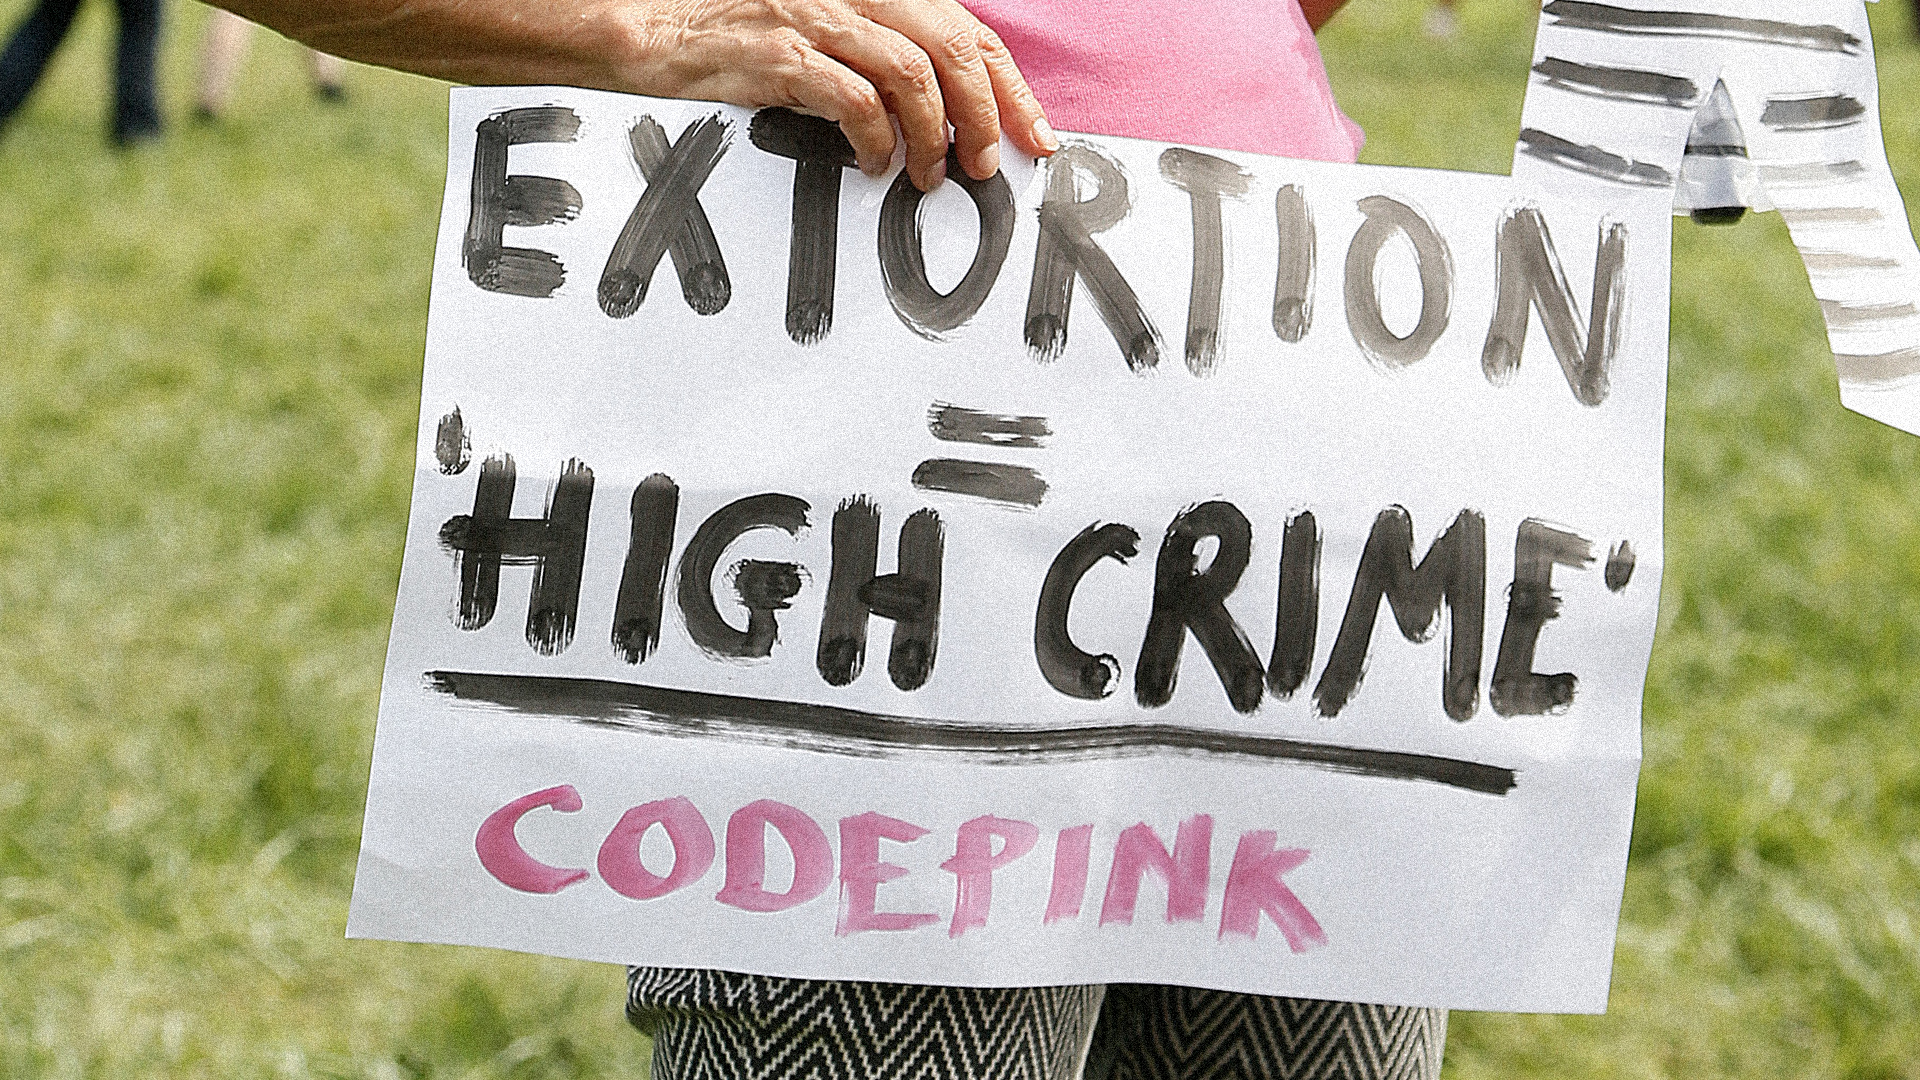 EXTORTION
=
'HIGH CRIME'
CODEPINK